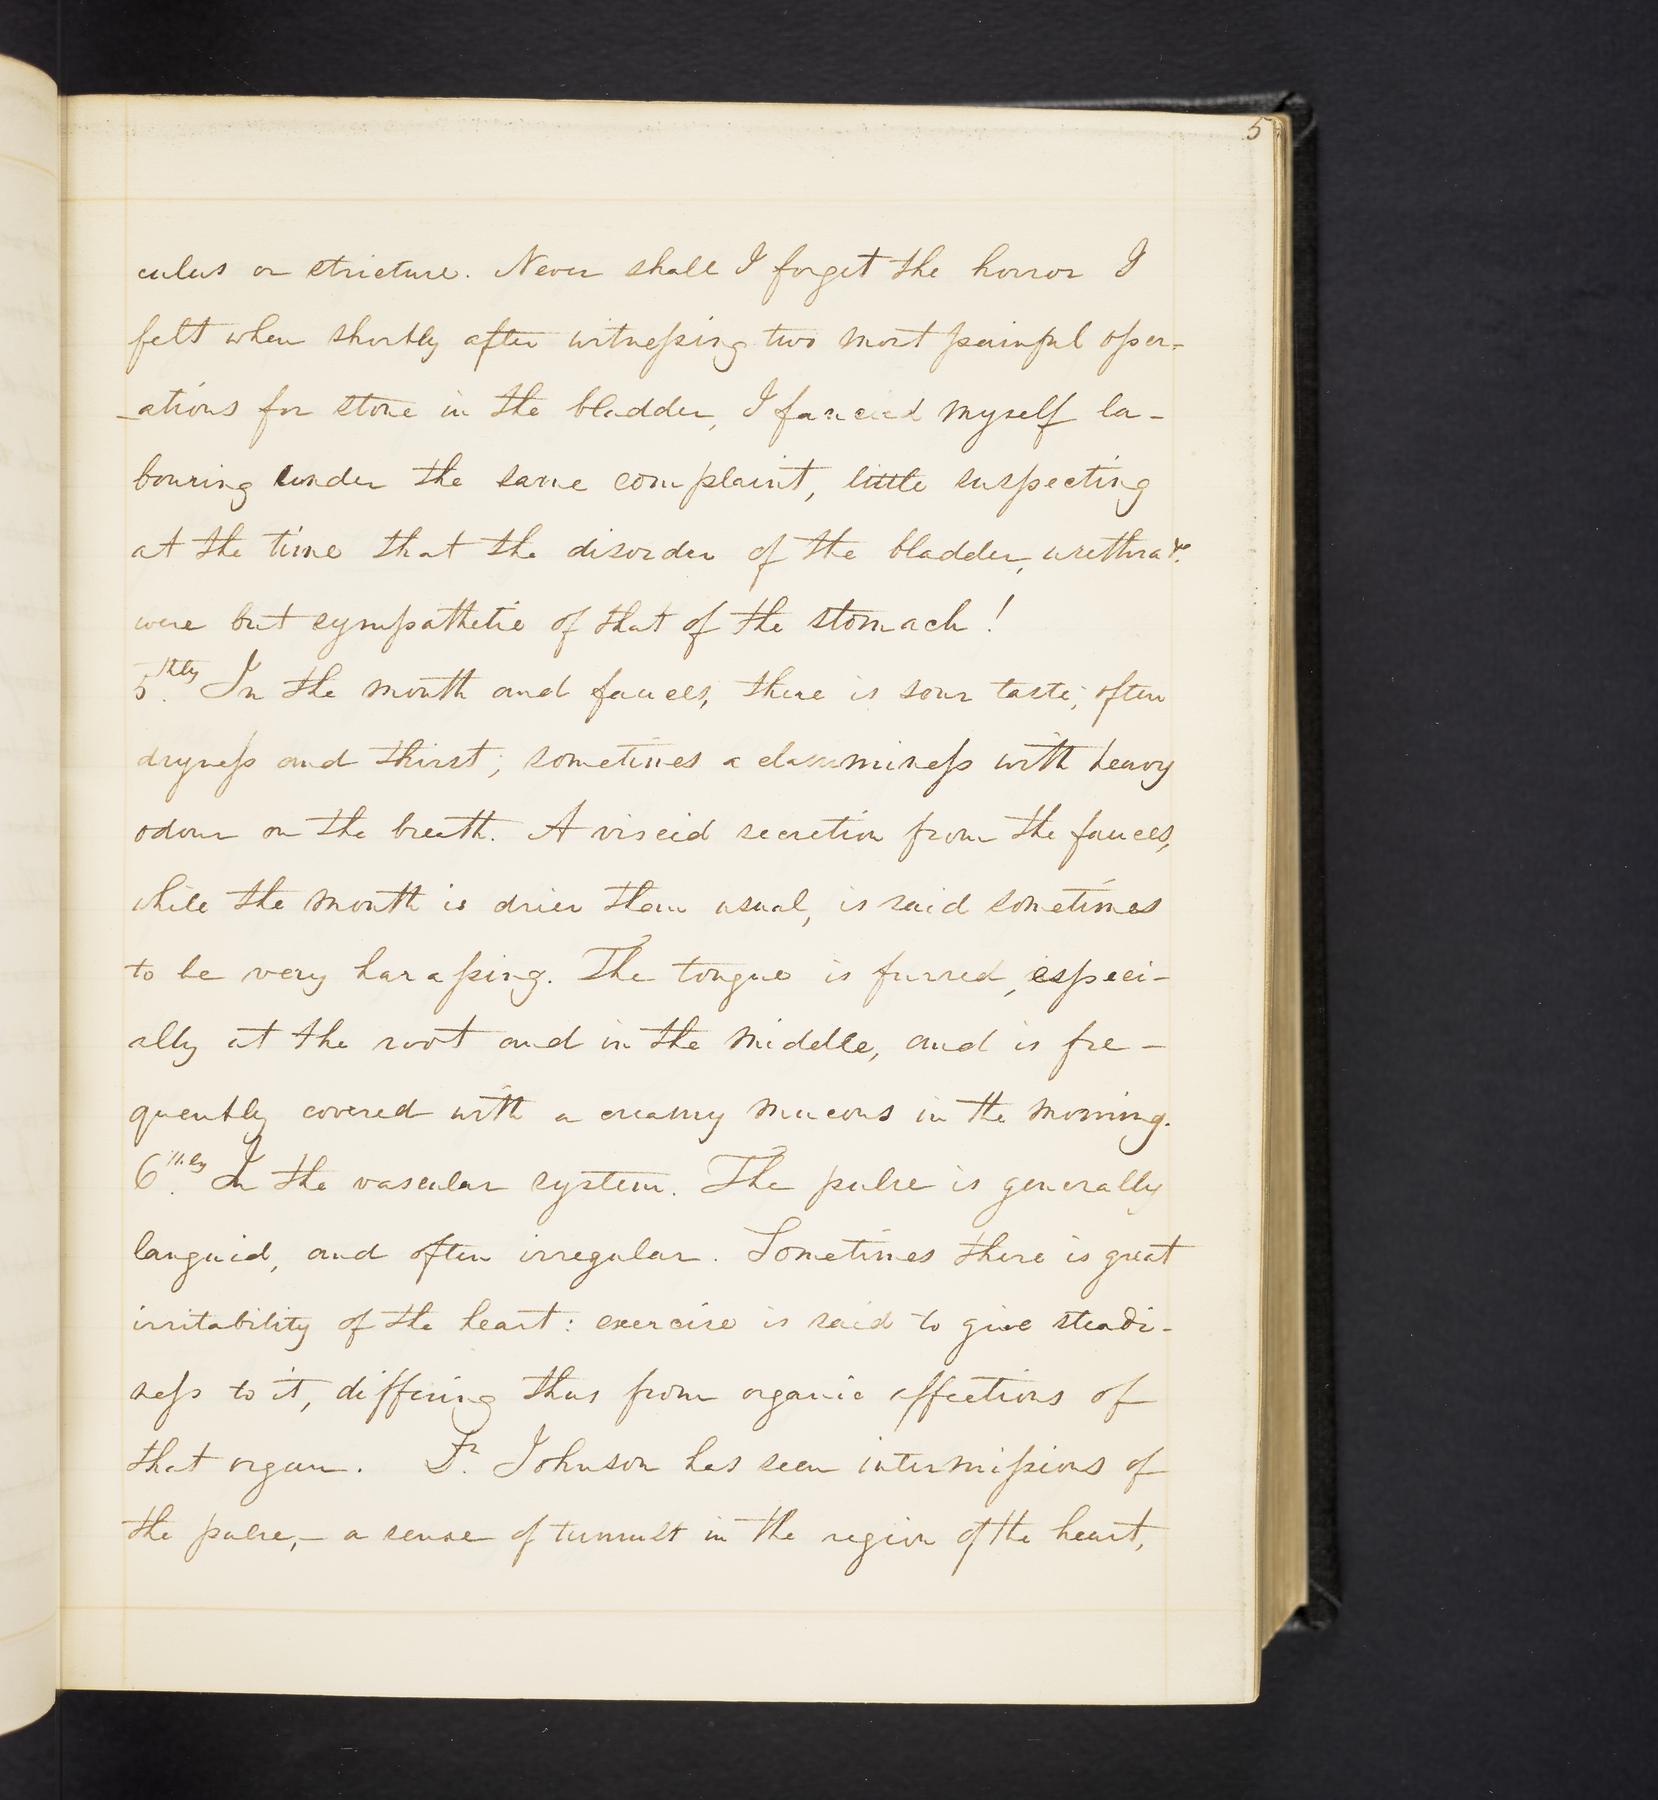 5
culus or stricture. Never shall I forget the horror I
felt when shortly after witneſsing two most painful oper-
-ations for stone in the bladder, I fancied myself la-
bouring under the same complaint, little suspecting
at the time that the disorder of the bladder, urethra &c.
were but sympathetic of that of the stomach!
5.thly In the mouth and fauces, there is sour taste; often
dryneſs and thirst; sometimes a clammineſs with heavy
odour on the breath. A viscid secretion from the fauces,
while the mouth is drier than usual, is said sometimes
to be very haraſsing. The tongue is furred, especi-
ally at the root and in the middle, and is fre-
quently covered with a creamy mucous in the morning.
6.thly In the vascular system. The pulse is generally
languid, and often irregular. Sometimes there is great
irritability of the heart: exercise is said to give steadi-
neſs to it, differing thus from organic affections of
that organ. Dr. Johnson has seen intermiſsions of
the pulse,- a sense of tumult in the region of the heart,